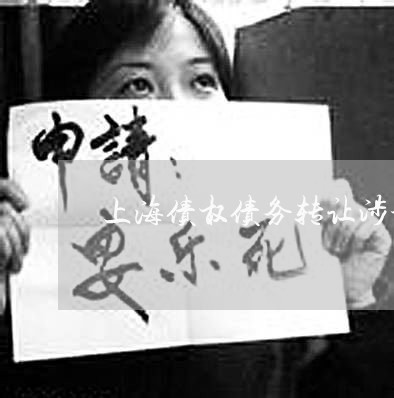 申請：
上海债权债务转让涉
安乐死